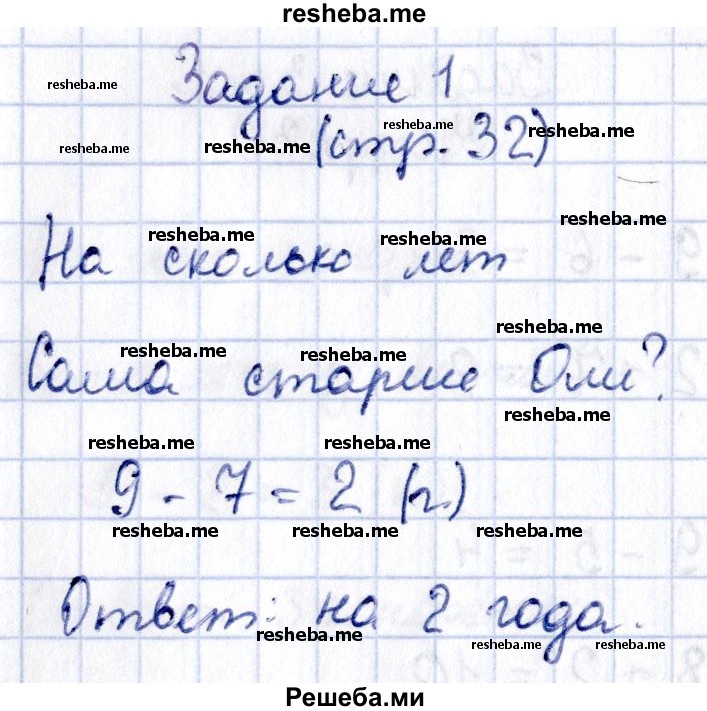 resheba.me
resheba.me Задание 1
resheba.me resheba.me resheba.me resheba.me
(стр. 32)
resheba.me resheba.me resheba.me
На сколько лет
resheba.me resheba.me resheba.me
Саша старше Оли?
resheba.me
resheba.me resheba.me
9 - 7 = 2 (г.)
resheba.me resheba.me resheba.me
Ответ: на 2 года.
resheba.me resheba.me resheba.me
Решеба.ми